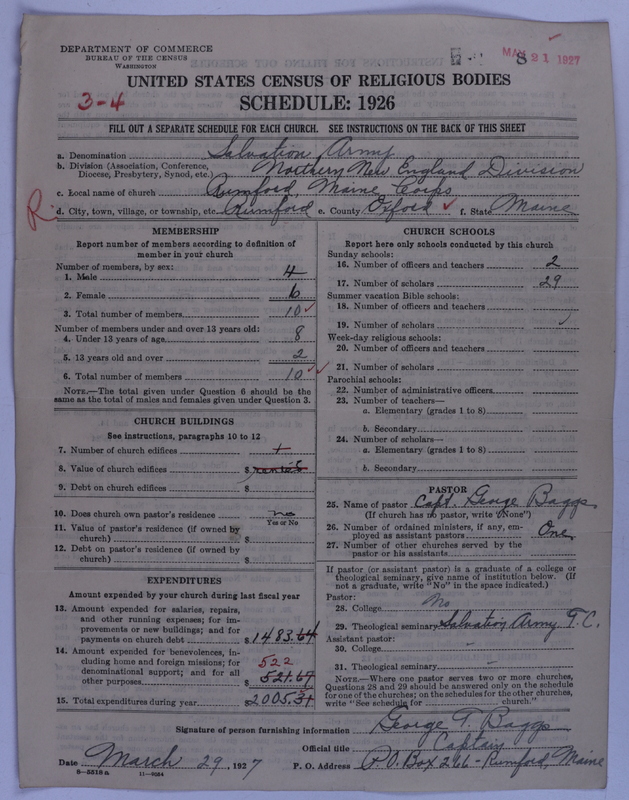 DEPARTMENT OF COMMERCE
BUREAU OF THE CENSUS
WASHINGTON
MAY 21 1927
UNITED STATES CENSUS OF RELIGIOUS BODIES
3-4
SCHEDULE: 1926
FILL OUT A SEPARATE SCHEDULE FOR EACH CHURCH. SEE INSTRUCTIONS ON THE BACK OF THIS SHEET
a. Denomination Salvation Army
b. Division (Association, Conference, Diocese, Presbytery, Synod, etc.) Northern New England Division
c. Local name of church Rumford Maine Corps
R. d. City, town, village, or township, etc. Rumford e. County Oxford ✓ f. State Maine
MEMBERSHIP
Report number of members according to definition of
member in your church
Number of members, by sex:
1. Male 4
2. Female 6
3. Total number of members 10 ✓
Number of members under and over 13 years old:
4. Under 13 years of age 8
5. 13 years old and over 2
6. Total number of members 10 ✓✓
NOTE.—The total given under Question 6 should be the
same as the total of males and females given under Question 3.
CHURCH BUILDINGS
See instructions, paragraphs 10 to 12
7. Number of church edifices 1
8. Value of church edifices $
9. Debt on church edifices $
10. Does church own pastor's residence no
Yes or No
11. Value of pastor's residence (if owned by
church) $
12. Debt on pastor's residence (if owned by
church) $
EXPENDITURES
Amount expended by your church during last fiscal year
13. Amount expended for salaries, repairs,
and other running expenses; for im-
provements or new buildings; and for
payments on church debt $1483.64
14. Amount expended for benevolences, in-
cluding home and foreign missions; for 522
denominational support; and for all
other purposes $521.67
15. Total expenditures during year $2005.31
CHURCH SCHOOLS
Report here only schools conducted by this church
Sunday schools:
16. Number of officers and teachers 2
17. Number of scholars 29
Summer vacation Bible schools:
18. Number of officers and teachers
19. Number of scholars ✓
Week-day religious schools:
20. Number of officers and teachers
21. Number of scholars
Parochial schools:
22. Number of administrative officers
23. Number of teachers—
a. Elementary (grades 1 to 8)
b. Secondary
24. Number of scholars—
a. Elementary (grades 1 to 8)
b. Secondary
PASTOR
25. Name of pastor Capt. George Baggs
(If church has no pastor, write "None")
26. Number of ordained ministers, if any, em-
ployed as assistant pastors One
27. Number of other churches served by the
pastor or his assistants
If pastor (or assistant pastor) is a graduate of a college or
theological seminary, give name of institution below. (If
not a graduate, write "No" in the space indicated.)
Pastor:
28. College No
29. Theological seminary Salvation Army T.C.
Assistant pastor:
30. College
31. Theological seminary
NOTE.—Where one pastor serves two or more churches,
Questions 28 and 29 should be answered only on the schedule
for one of the churches; on the schedules for the other churches,
write "See schedule for church."
Signature of person furnishing information George T. Baggs
Official title Captain
Date March 29, 1927 P. O. Address P.O. Box 266 - Rumford, Maine
8-5518a 11-9054